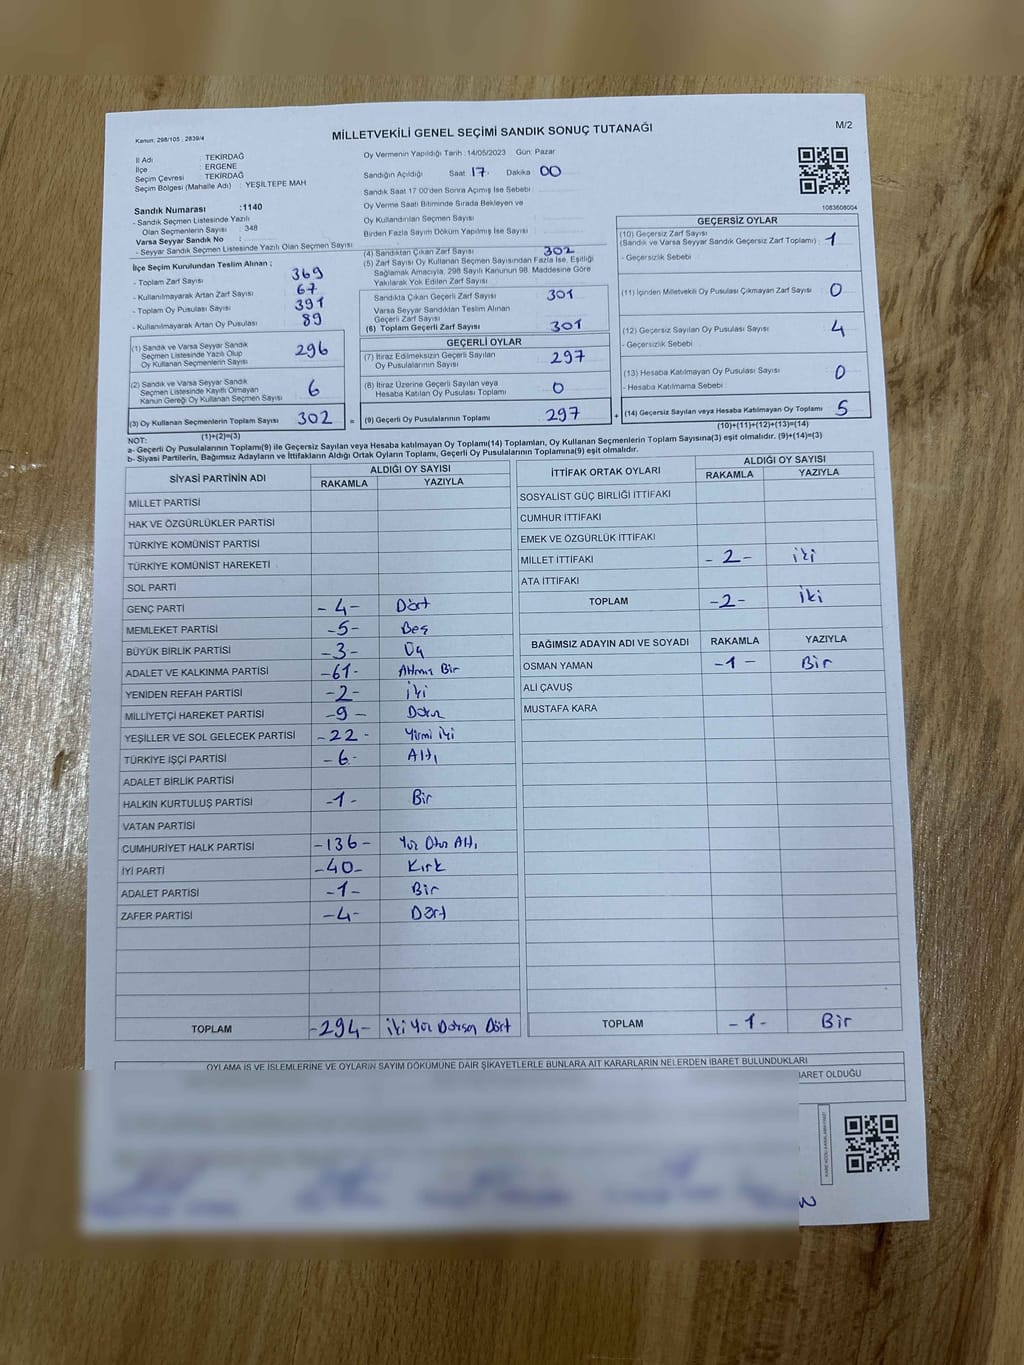 Kanun: 298/105 , 2839/4
MİLLETVEKİLİ GENEL SEÇİMİ SANDIK SONUÇ TUTANAĞI
M/2
İl Adı : TEKİRDAĞ
İlçe : ERGENE
Seçim Çevresi : TEKİRDAĞ
Seçim Bölgesi (Mahalle Adı) : YEŞİLTEPE MAH
Sandık Numarası :1140
- Sandık Seçmen Listesinde Yazılı
Olan Seçmenlerin Sayısı : 348
Varsa Seyyar Sandık No :
- Seyyar Sandık Seçmen Listesinde Yazılı Olan Seçmen Sayısı
Oy Vermenin Yapıldığı Tarih : 14/05/2023 Gün: Pazar
Sandığın Açıldığı Saat 17 Dakika 00
Sandık Saat 17 00'den Sonra Açımış İse Sebebi :
Oy Verme Saati Bitiminde Sırada Bekleyen ve
Oy Kullandırılan Seçmen Sayısı :
Birden Fazla Sayım Döküm Yapılmış İse Sayısı :
1083608004
İlçe Seçim Kurulundan Teslim Alınan ;
- Toplam Zarf Sayısı : 369
- Kullanılmayarak Artan Zarf Sayısı : 67
- Toplam Oy Pusulası Sayısı : 391
- Kullanılmayarak Artan Oy Pusulası : 89
(1) Sandık ve Varsa Seyyar Sandık
Seçmen Listesinde Yazılı Olup
Oy Kullanan Seçmenlerin Sayısı : 296
(2) Sandık ve Varsa Seyyar Sandık
Seçmen Listesinde Kayıtlı Olmayan
Kanun Gereği Oy Kullanan Seçmen Sayısı : 6
(3) Oy Kullanan Seçmenlerin Toplam Sayısı : 302
(1)+(2)=(3)
(4) Sandıktan Çıkan Zarf Sayısı : 302
(5) Zarf Sayısı Oy Kullanan Seçmen Sayısından Fazla İse, Eşitliği
Sağlamak Amacıyla, 298 Sayılı Kanunun 98. Maddesine Göre
Yakılarak Yok Edilen Zarf Sayısı :
Sandıkta Çıkan Geçerli Zarf Sayısı : 301
Varsa Seyyar Sandıktan Teslim Alınan
Geçerli Zarf Sayısı :
(6) Toplam Geçerli Zarf Sayısı : 301
GEÇERLİ OYLAR
(7) İtiraz Edilmeksizin Geçerli Sayılan
Oy Pusulasının Sayısı : 297
(8) İtiraz Üzerine Geçerli Sayılan veya
Hesaba Katılan Oy Pusulası Toplamı : 0
= (9) Geçerli Oy Pusulalarının Toplamı : 297
GEÇERSİZ OYLAR
(10) Geçersiz Zarf Sayısı
(Sandık ve Varsa Seyyar Sandık Geçersiz Zarf Toplamı) : 1
- Geçersizlik Sebebi :
(11) İçinden Milletvekili Oy Pusulası Çıkmayan Zarf Sayısı : 0
(12) Geçersiz Sayılan Oy Pusulası Sayısı : 4
- Geçersizlik Sebebi :
(13) Hesaba Katılmayan Oy Pusulası Sayısı : 0
- Hesaba Katılmama Sebebi :
+ (14) Geçersiz Sayılan veya Hesaba Katılmayan Oy Toplamı : 5
(10)+(11)+(12)+(13)=(14)
NOT:
a- Geçerli Oy Pusulalarının Toplamı(9) ile Geçersiz Sayılan veya Hesaba katılmayan Oy Toplamı(14) Toplamları, Oy Kullanan Seçmenlerin Toplam Sayısına(3) eşit olmalıdır. (9)+(14)=(3)
b- Siyasi Partilerin, Bağımsız Adayların ve İttifakların Aldığı Oyların Toplamı, Geçerli Oy Pusulalarının Toplamına(9) eşit olmalıdır.
SİYASİ PARTİNİN ADI ALDIĞI OY SAYISI
RAKAMLA YAZIYLA
MİLLET PARTİSİ
HAK VE ÖZGÜRLÜKLER PARTİSİ
TÜRKİYE KOMÜNİST PARTİSİ
TÜRKİYE KOMÜNİST HAREKETİ
SOL PARTİ
GENÇ PARTİ -4- Dört
MEMLEKET PARTİSİ -5- Beş
BÜYÜK BİRLİK PARTİSİ -3- Üç
ADALET VE KALKINMA PARTİSİ -61- Altmış Bir
YENİDEN REFAH PARTİSİ -2- iki
MİLLİYETÇİ HAREKET PARTİSİ -9- Dokuz
YEŞİLLER VE SOL GELECEK PARTİSİ -22- Yirmi iki
TÜRKİYE İŞÇİ PARTİSİ -6- Altı
ADALET BİRLİK PARTİSİ
HALKIN KURTULUŞ PARTİSİ -1- Bir
VATAN PARTİSİ
CUMHURİYET HALK PARTİSİ -136- Yüz Otuz Altı
İYİ PARTİ -40- Kırk
ADALET PARTİSİ -1- Bir
ZAFER PARTİSİ -4- Dört
TOPLAM -294- iki Yüz Doksan Dört
İTTİFAK ORTAK OYLARI ALDIĞI OY SAYISI
RAKAMLA YAZIYLA
SOSYALİST GÜÇ BİRLİĞİ İTTİFAKI
CUMHUR İTTİFAKI
EMEK VE ÖZGÜRLÜK İTTİFAKI
MİLLET İTTİFAKI -2- iki
ATA İTTİFAKI
TOPLAM -2- iki
BAĞIMSIZ ADAYIN ADI VE SOYADI RAKAMLA YAZIYLA
OSMAN YAMAN -1- Bir
ALİ ÇAVUŞ
MUSTAFA KARA
TOPLAM -1- Bir
OYLAMA İŞ VE İŞLEMLERİNE VE OYLARIN SAYIM DÖKÜMÜNE DAİR ŞİKAYETLERLE BUNLARA AİT KARARLARIN NELERDEN İBARET BULUNDUKLARI
BARET OLDUĞU